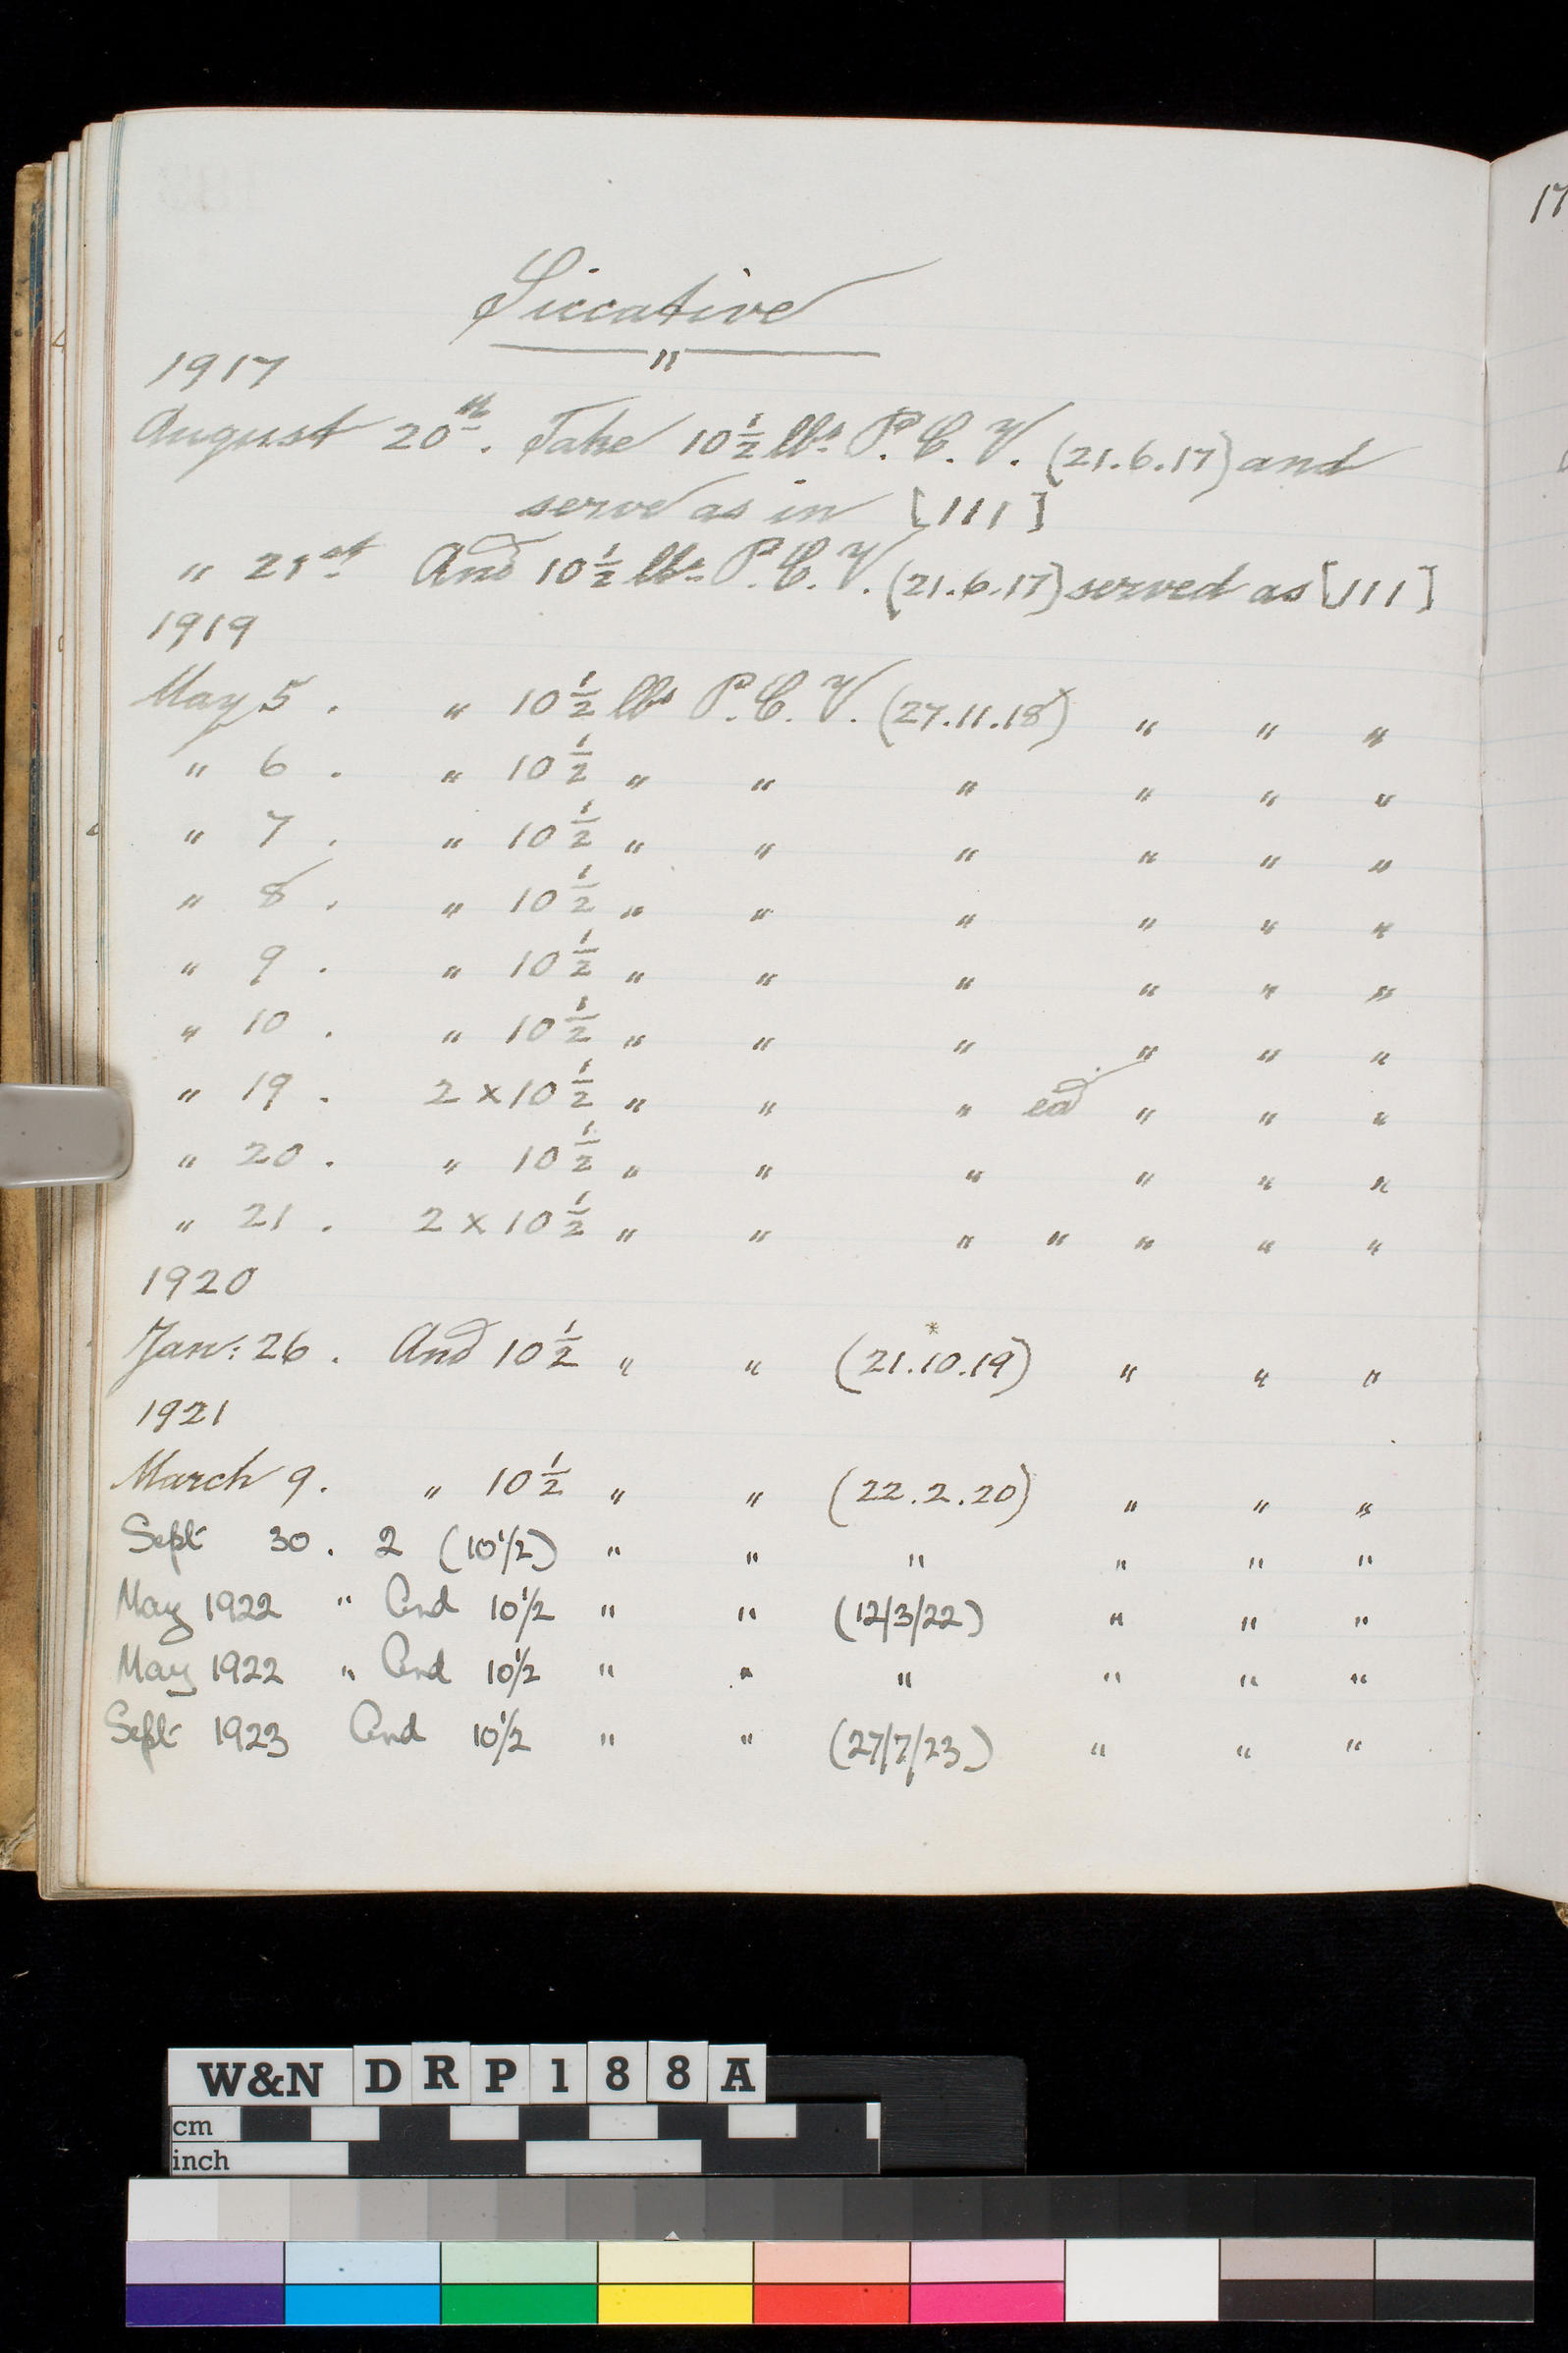 17
Siccative
"
1917
August 20th. Take 10 1/2 lbs. P.C.V. (21.6.17) and
serve as in [111]
" 21st. And 10 1/2 lbs. P.C.V. (21.6.17) served as [111]
1919
May 5 . " 10 1/2 lbs P.C.V. (27.11.18) " " "
" 6 . " 10 1/2 " " " " " "
" 7 . " 10 1/2 " " " " " "
" 8 . " 10 1/2 " " " " " "
" 9 . " 10 1/2 " " " " " "
" 10 . " 10 1/2 " " " " " "
" 19 . 2 x 10 1/2 " " " ea " " "
" 20 . " 10 1/2 " " " " " "
" 21 . 2 x 10 1/2 " " " " " " "
1920
Jan: 26 . And 10 1/2 " " (21.10.19) " " "
1921
March 9. " 10 1/2 " " (22.2.20) " " "
Sept 30. 2 (10 1/2) " " " " " "
May 1922 " And 10 1/2 " " (12/3/22) " " "
May 1922 " And 10 1/2 " " " " " "
Sept 1923 And 10 1/2 " " (27/7/23) " " "
W&N DRP188A
cm
inch